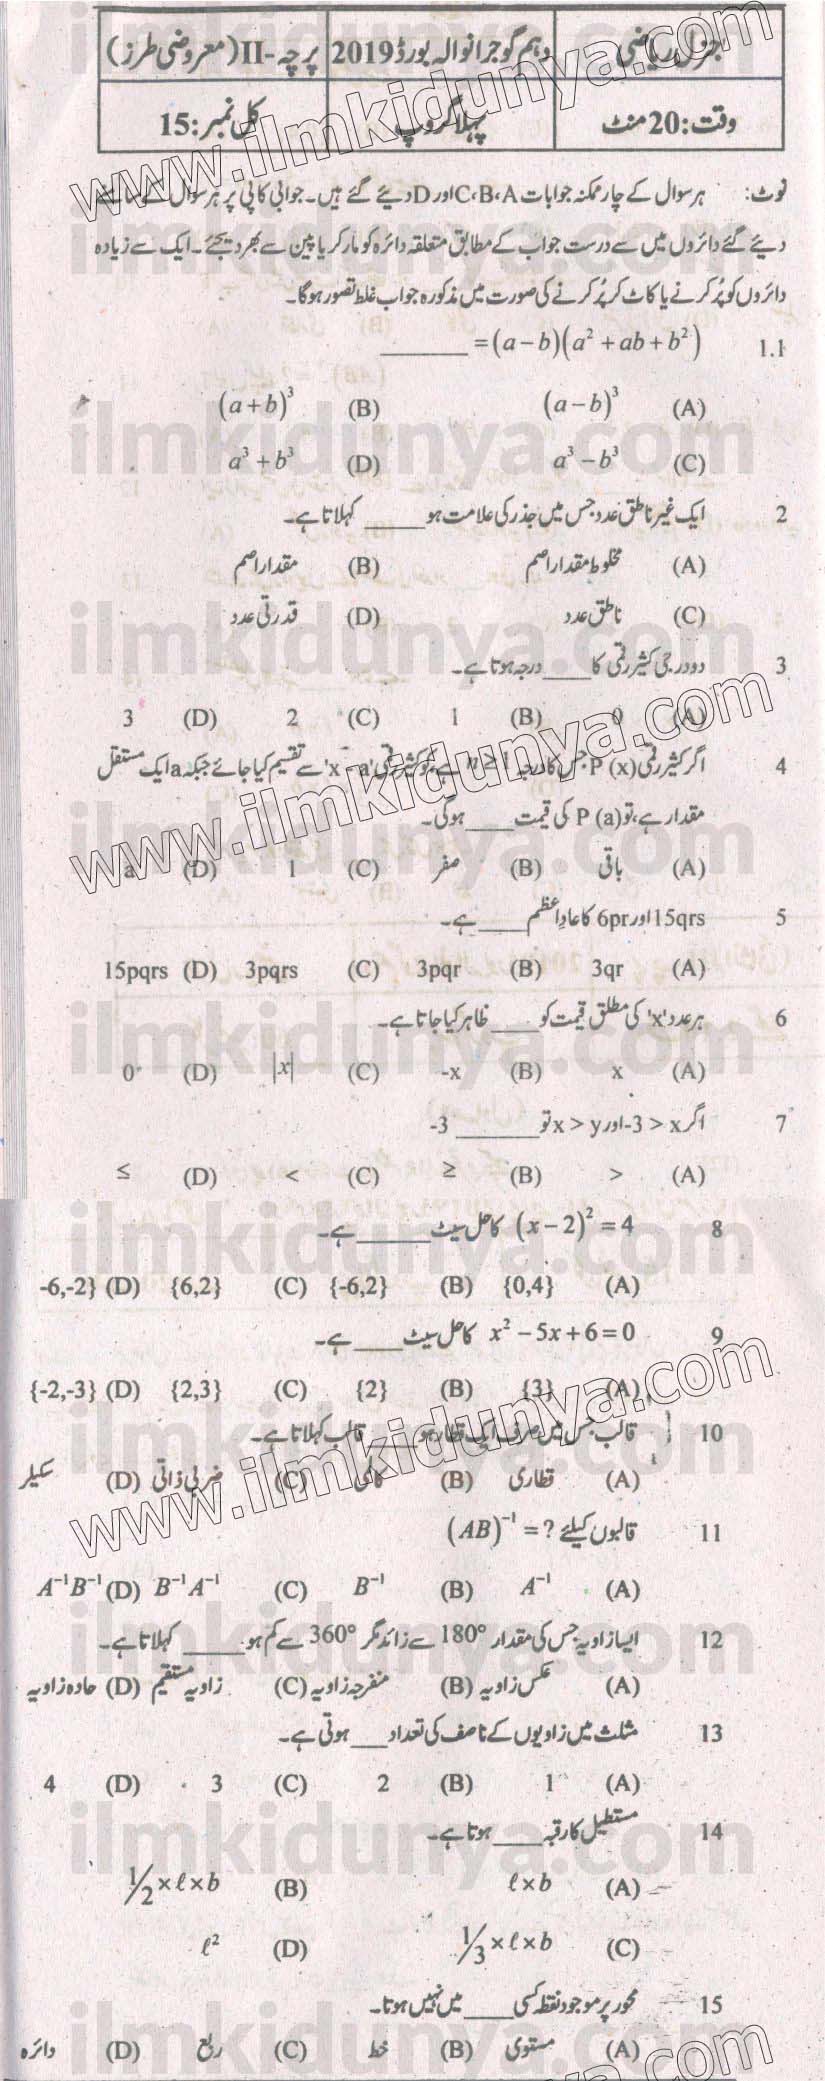 جنرل ریاضی دہم گوجرانوالہ بورڈ 2019 پرچہ-II (معروضی طرز)
وقت: 20 منٹ پہلا گروپ کل نمبر: 15
نوٹ: ہر سوال کے چار ممکنہ جوابات C،B،A اور D دیئے گئے ہیں۔ جوابی کاپی پر ہر سوال کے سامنے
دیئے گئے دائروں میں سے درست جواب کے مطابق متعلقہ دائرہ کو مارکر یا پین سے بھر دیجئے۔ ایک سے زیادہ
دائروں کو پُر کرنے یا کاٹ کر پُر کرنے کی صورت میں مذکورہ جواب غلط تصور ہوگا۔
1.1 ______ = (a−b)(a² + ab + b²)
(A) (a−b)³ (B) (a+b)³
(C) a³ − b³ (D) a³ + b³
2 ایک غیر ناطق عدد جس میں جذر کی علامت ہو ____ کہلاتا ہے۔
(A) مخلوط مقدار اصم (B) مقدار اصم
(C) ناطق عدد (D) قدرتی عدد
3 دو درجی کثیر رقمی کا ____ درجہ ہوتا ہے۔
(A) 0 (B) 1 (C) 2 (D) 3
4 اگر کثیر رقمی P (x) جس کا درجہ n ≥ 1 ہے کو کثیر رقمی 'x - a' سے تقسیم کیا جائے جبکہ a ایک مستقل
مقدار ہے، تو P (a) کی قیمت ____ ہوگی۔
(A) باقی (B) صفر (C) 1 (D) a
5 15qrs اور 6pr کا عاداعظم ____ ہے۔
(A) 3qr (B) 3pqr (C) 3pqrs (D) 15pqrs
6 ہر عدد 'x' کی مطلق قیمت کو ____ ظاہر کیا جاتا ہے۔
(A) x (B) -x (C) |x| (D) 0
7 اگر x > -3 اور x > y تو ______ -3
(A) > (B) ≥ (C) < (D) ≤
8 (x−2)² = 4 کا حل سیٹ ______ ہے۔
(A) {0,4} (B) {-6,2} (C) {6,2} (D) -6,-2}
9 x² − 5x + 6 = 0 کا حل سیٹ ____ ہے۔
(A) {3} (B) {2} (C) {2,3} (D) {-2,-3}
10 قالب جس میں صرف ایک قطار ہو ____ قالب کہلاتا ہے۔
(A) قطاری (B) کالمی (C) ضربی ذاتی (D) سکیلر
11 قالبوں کیلئے ? = (AB)⁻¹
(A) A⁻¹ (B) B⁻¹ (C) B⁻¹A⁻¹ (D) A⁻¹B⁻¹
12 ایسا زاویہ جس کی مقدار 180° سے زائد مگر 360° سے کم ہو ____ کہلاتا ہے۔
(A) عکس زاویہ (B) منفرجہ زاویہ (C) زاویہ مستقیم (D) حادہ زاویہ
13 مثلث میں زاویوں کے ناصف کی تعداد ____ ہوتی ہے۔
(A) 1 (B) 2 (C) 3 (D) 4
14 مستطیل کا رقبہ ____ ہوتا ہے۔
(A) ℓ×b (B) 1/2×ℓ×b
(C) 1/3×ℓ×b (D) ℓ²
15 محور پر موجود نقطہ کسی ____ میں نہیں ہوتا۔
(A) مستوی (B) خط (C) ربع (D) دائرہ
www.ilmkidunya.com
www.ilmkidunya.com
www.ilmkidunya.com
www.ilmkidunya.com
ilmkidunya.com
ilmkidunya.com
ilmkidunya.com
ilmkidunya.com
ilmkidunya.com
ilmkidunya.com
ilmkidunya.com
ilmkidunya.com
ilmkidunya.com
ilmkidunya.com